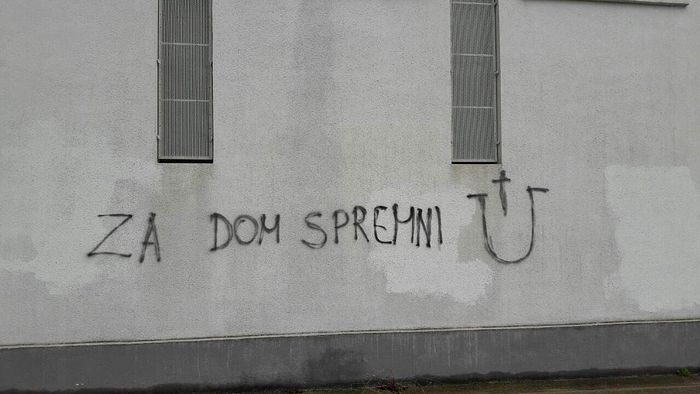 ZA DOM SPREMNI U